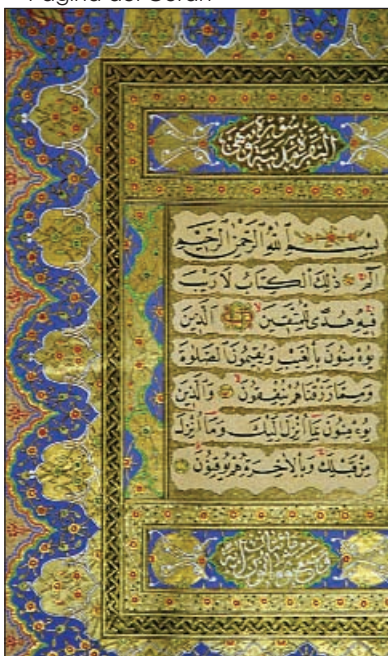 Página del Corán
سُورَةُ
الْبَقَرَةِ مَدَنِيَّةٌ وَهِيَ
بِسْمِ اللهِ الرَّحْمٰنِ الرَّحِيمِ
الم ذٰلِكَ الْكِتَابُ لَا رَيْبَ
فِيهِ هُدًى لِلْمُتَّقِينَ اَلَّذِينَ
يُؤْمِنُونَ بِالْغَيْبِ وَيُقِيمُونَ الصَّلٰوةَ
وَمِمَّا رَزَقْنَاهُمْ يُنْفِقُونَ وَالَّذِينَ
يُؤْمِنُونَ بِمَا اُنْزِلَ اِلَيْكَ وَمَا اُنْزِلَ
مِنْ قَبْلِكَ وَبِالْاٰخِرَةِ هُمْ يُوقِنُونَ